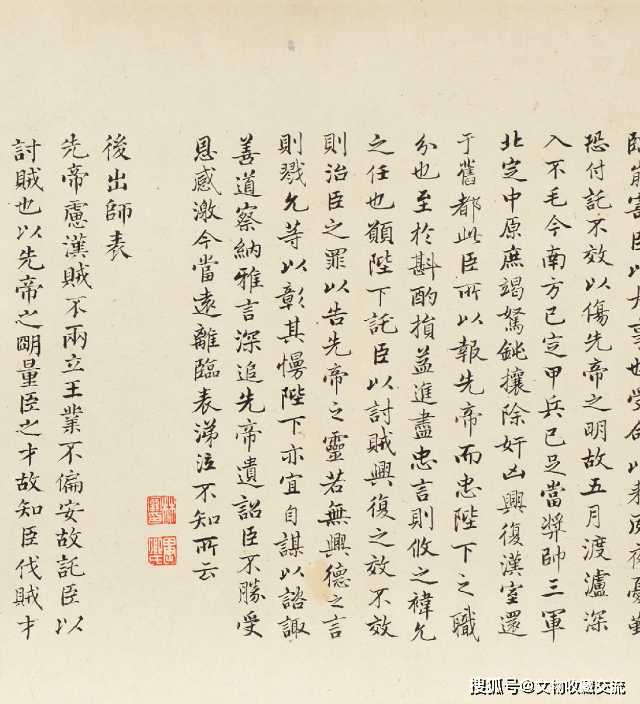 臨崩寄臣以大事也受命以來夙夜憂勤
恐付託不效以傷先帝之明故五月渡瀘深
入不毛今南方已定甲兵已足當獎帥三軍
北定中原庶竭駑鈍攘除奸凶興復漢室還
于舊都此臣所以報先帝而忠陛下之職
分也至於斟酌損益進盡忠言則攸之禕允
之任也願陛下託臣以討賊興復之效不效
則治臣之罪以告先帝之靈若無興德之言
則戮允等以彰其慢陛下亦宜自謀以諮諏
善道察納雅言深追先帝遺詔臣不勝受
恩感激今當遠離臨表涕泣不知所云
後出師表
先帝慮漢賊不兩立王業不偏安故託臣以
討賊也以先帝之明量臣之才故知臣伐賊才
搜狐号@文物收藏交流